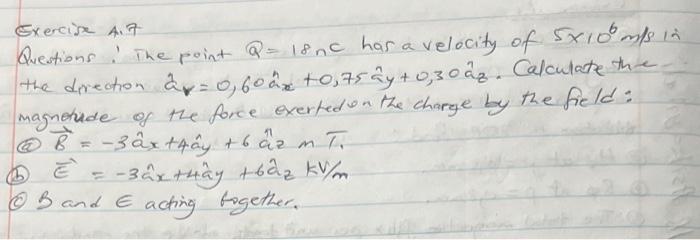 Exercise 4.7
Questions : The point Q = 18nC has a velocity of 5x10⁶ m/s in
the direction âv = 0,60âx + 0,75ây + 0,30âz. Calculate the
magnetude of the force exerted on the charge by the field:
(a) B⃗ = -3âx + 4ây + 6âz mT.
(b) E⃗ = -3âx + 4ây + 6âz kV/m
(c) B and E acting together.